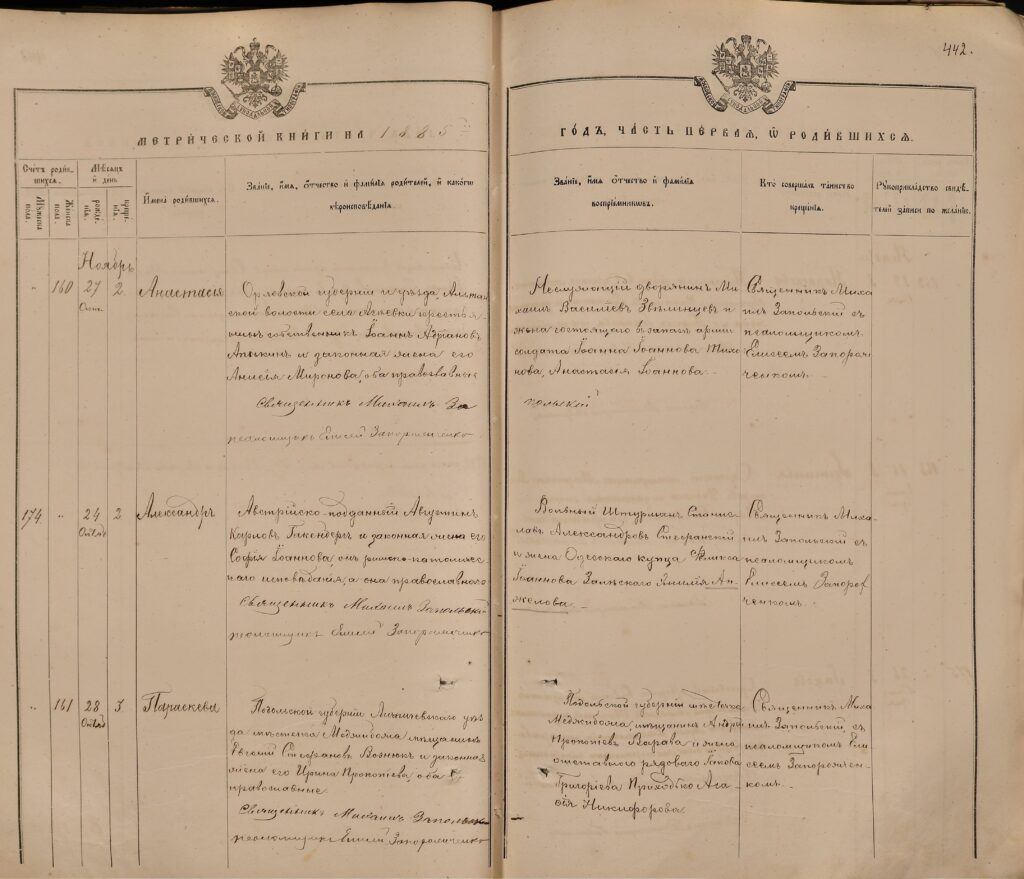 442.
МЕТРИЧЕСКОЙ КНИГИ НА 1885 ГОДЪ, ЧАСТЬ ПЕРВАЯ, Ѡ РОДИВШИХСЯ.
Счетъ родив-
шихся.
Мужеска
пола.
Женска
пола.
Мѣсяцъ
и день
рожде-
нія.
креще-
нія.
Имена родившихся.
Званіе, имя, отчество и фамилія родителей, и какогѡ
вѣроисповѣданія.
Званіе, имя, отчество и фамилія
воспріемниковъ.
Кто совершалъ таинство
крещенія.
Рукоприкладство свидѣ-
телей записи по желанію.
Ноябрь
"
160
27
Окт.
2
Анастасія
Орловской губерніи и уѣзда,
ской волости села крестья-
нинъ собственникъ Іоаннъ Адріановъ
и законная жена его
Анисія Миронова, оба православные
Священникъ Михаилъ За
псаломщикъ Елисей Запорожченко
Неслужащій дворянинъ Ми-
хаилъ Васильевъ и
жена состоящаго въ запасѣ арміи
солдата Іоанна Іоаннова Тихо
нова, Анастасія Іоаннова
польскій
Священникъ Миха-
илъ Запольскій съ
псаломщикомъ
Елисеемъ Запорож
ченкомъ.
174
"
24
Октяб
2
Александръ
Австрійско-подданный Августинъ
Карловъ и законная жена его
Софія Іоаннова, онъ римско-католичес-
каго исповѣданія, а она православнаго
Священникъ Михаилъ Запольскій
псаломщикъ Елисей Запорожченко
Вольный Штурманъ Станис-
лавъ Александровъ
и жена Одесскаго купца Феликса
Іоаннова Эмилія Ан-
желова
Священникъ Миха-
илъ Запольскій съ
псаломщикомъ
Елисеемъ Запорож
ченкомъ.
"
161
28
Октяб
3
Параскева
Подольской губерніи Летичевскаго уѣз-
да мѣстечка Меджибожа мѣщанинъ
Евгеній Стефановъ Вознюкъ и законная
жена его Ирина Прокопіева, оба
православные
Священникъ Михаилъ Запольскій
псаломщикъ Елисей Запорожченко
Подольской губерніи мѣстечка
Меджибожа, мѣщанинъ Андрей
Прокопіевъ Варава и жена
отставнаго рядоваго Іакова
Григоріева Приходько Ага-
фія Никифорова
Священникъ Миха
илъ Запольскій съ
псаломщикомъ Ели-
сеемъ Запорожчен-
комъ.